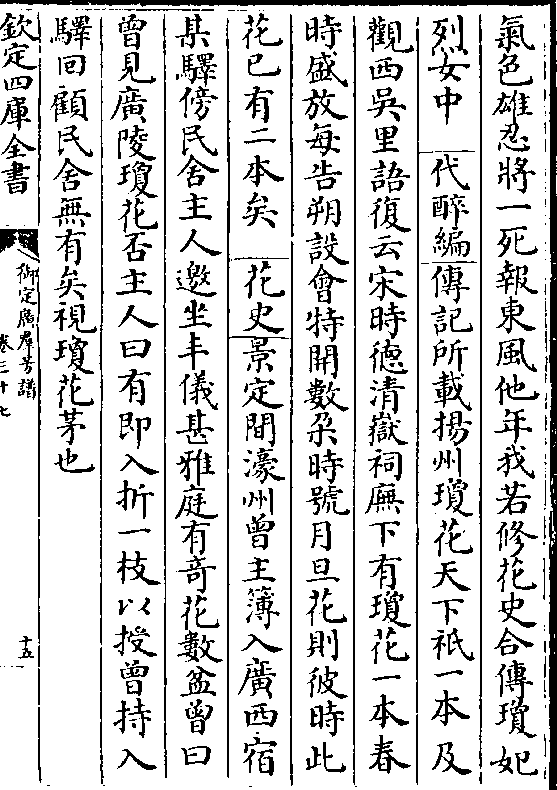 氣色雄忍將一死報東風他年我若修花史合傳瓊妃
烈女中　代醉編傳記所載揚州瓊花天下祇一本及
觀西吳里語復云宋時德清嶽祠廡下有瓊花一本春
時盛放每告朔設會特開數朶時號月旦花則彼時此
花已有二本矣　花史景定間濠州曾主簿入廣西宿
某驛傍民舍主人邀坐丰儀甚雅庭有竒花數盆曾曰
曾見廣陵瓊花否主人曰有即入折一枝以授曾持入
驛回顧民舍無有矣視瓊花茅也
欽定四庫全書
御定廣羣芳譜
卷三十七
十五